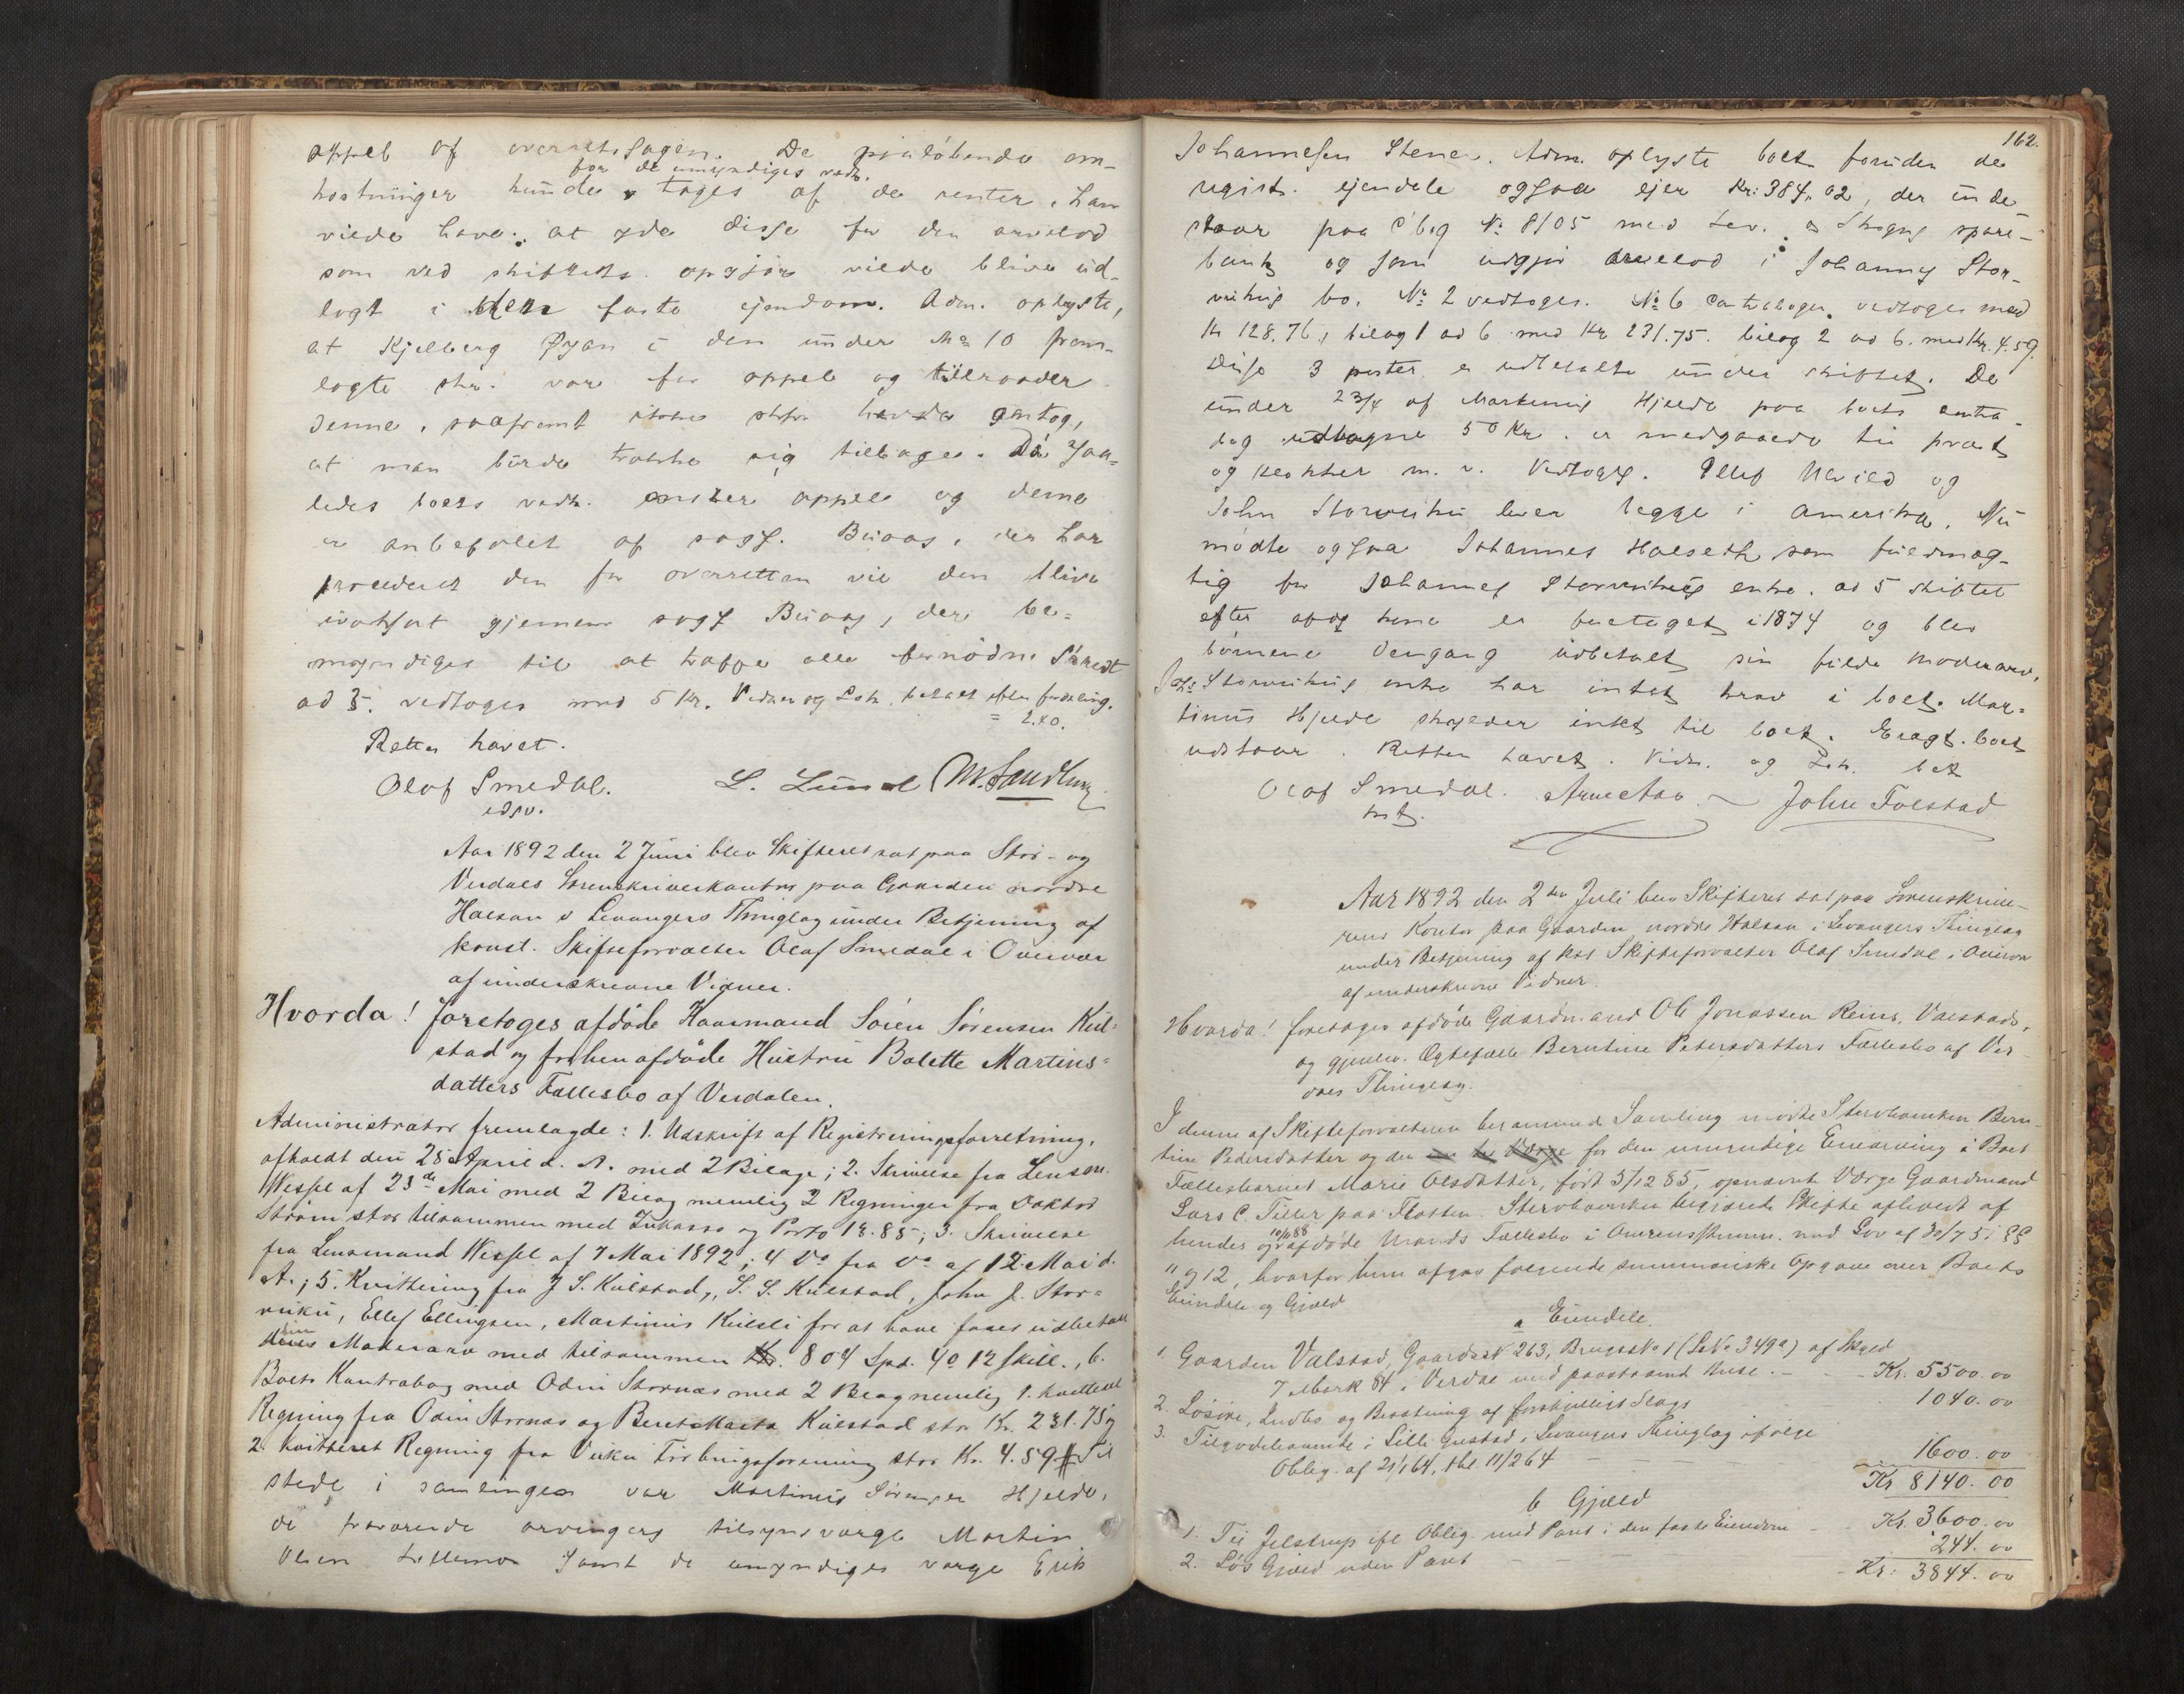 appel af overretssagen. De paaløbende om-
for de umyndiges vedk.
kostninger kunde tages af de renter, han
vilde have at yde disse for den arvelod
som ved skiftets opgjør vilde blive ud-
lagt i den faste ejendom. Adm. oplyste,
at Kjelberg Øgan i den under No 10 frem-
lagte skr. var for appel og tilraader
denne, saafremt ikke antog,
at man burde trække sig tilbage. Da saa-
ledes boets vedk. ønsker appel og denne
er anbefalet af sagf. Buaas, der har
procederet den for overretten vil den blive
iværksat gjennem sagf Buaas, der be-
myndiges til at træffe alle fornødne Skridt
ad 5. vedtoges med 5 Kr. Vidner og betalt efter fordeling.
= 2.40.
Retten hævet.
Olof Smedal. L. Lund M. Sandberg
edsv.
Aar 1892 den 2 Juni blev Skifteret sat paa Stør- og
Verdals Sorenskriverkontor paa Gaarden nordre
Halsan i Levangers Thinglag under Betjening af
konst. Skifteforvalter Olaf Smedal i Overvær
af underskrevne Vidner.
Hvorda! foretoges afdøde Kaarmand Søren Sørensen Kul-
stad og forhen afdøde Hustru Bolette Martins-
datters Fællesbo af Verdalen.
Administrator fremlagde: 1. Udskrift af Registreringsforretning,
afholdt den 25 April d. A. med 2 Bilage; 2. Skrivelse fra Lensm.
Wessel af 23de Mai med 2 Bilag nemlig 2 Regninger fra Doktor
Strøm stor tilsammen med Inkasso og Porto 18.85; 3. Skrivelse
fra Lensmand Wessel af 7 Mai 1892; 4 Do fra Do af 12 Mai d.
A.; 5. Kvittering fra J S. Kulstad, S. S. Kulstad, John J. Stor-
vuku, Ellef Ellingsen, Martinus Kulsli for at have faaet udbetalt
sin Moderarv med tilsammen 804 Spd. 4 o 12 skill., 6.
Boets Kontrabog med Odin Stornæs med 2 Bilag nemlig 1. kvitteret
Regning fra Odin Stornæs og Beret Marta Kulstad stor Kr. 231.75 og
2. kvitteret Regning fra Vuku Forbrugsforening stor Kr. 4.59 Til
stede i samlingen var Martinus Sørensen Hjelde,
de fraværende arvingers tilsynsværge Martin
Olsen Lillemo samt de umyndiges værge Erik
162.
Johannesen Stene. Adm. oplyste boet foruden de
regist. ejendele ogsaa ejer Kr: 384,02, der inde-
staar paa Cbog No 8105 med Lev. & Skogns spare-
bank og som udgjør arvelod i Johannes Stor-
vukus bo. No 2 vedtoges. No 6 Contrabogen vedtoges med
Kr 128.76, bilag 1 ad 6 med Kr 231.75. bilag 2 ad 6. med Kr. 4.59.
Disse 3 poster er udbetalte under skiftet. De
under 23/4 af Martinus Hjelde paa boets contra-
bog udtagne 50 Kr. er medgaaede til præst
og klokker m. v. Vedtoges. Ellef Ulvild og
John Storvuku lever begge i Amerika. Nu
mødte ogsaa Johannes Halseth som fuldmæg-
tig for Johannes Storvukus enke. ad 5 skiftet
efter afdødes kone er foretaget i 1874 og blev
børnene dengang udbetalt sin fulde moderarv.
Johs Storvukus enke har intet krav i boet. Mar-
tinus Hjelde skylder intet til boet. boet
udstaar. Retten hævet. Vidn. og bet
Olaf Smedal. Arne Aas John Tolstad
kst.
Aar 1892 den 2den Juli blev Skifteret sat paa Sorenskrive-
rens Kontor paa Gaarden nordre Halsan i Levangers Thinglag
under Betjening af kst Skifteforvalter Olaf Smedal i Overvær
af underskrevne Vidner.
Hvorda! foretoges afdøde Gaardmand Ole Jonassen Reins, Valstads,
og gjenlev. Egtefælle Berntine Petersdatters Fællesbo af Ver-
dals Thinglag.
I denne af Skifteforvalteren berammede Samling mødte Stervboenken Bern-
tine Pedersdatter og den for den umyndige Enearving i Boet
Fællesbarnet Marie Olsdatter, født 3/12 85, opnævnte Værge Gaardmand
Lars C. Tiller paa Floden. Stervboenken begjærede Skifte afholdt af
hendes og 10/11 88 afdøde Mands Fællesbo i Overensstemm. med Lov af 30/7 51 §§
11 og 12, hvorfor hun afgav følgende summariske Opgave over Boets
Eiendele og Gjæld
a Eiendele.
1. Gaarden Valstad, Gaards No 263, Brugs No 1 (L No 349a) af Skyld
7 Mark 84 i Verdal med paastaaende Huse. - - - Kr. 5500.00
2. Løsøre, Indbo og Besætning af forskjelligt Slags 1040.00
3. Tilgodehavende i Lille Gustad, Levangers Thinglag ifølge
Oblig. af 21/1 64, thl. 11/2 64 - - - 1600.00
Kr 8140.00
b Gjæld
1. Til Jelstrup ifl Oblig. med Pant i den faste Eiendom - Kr. 3600.00
2. Løs Gjæld uden Pant - - - 244.00
Kr: 3844.00